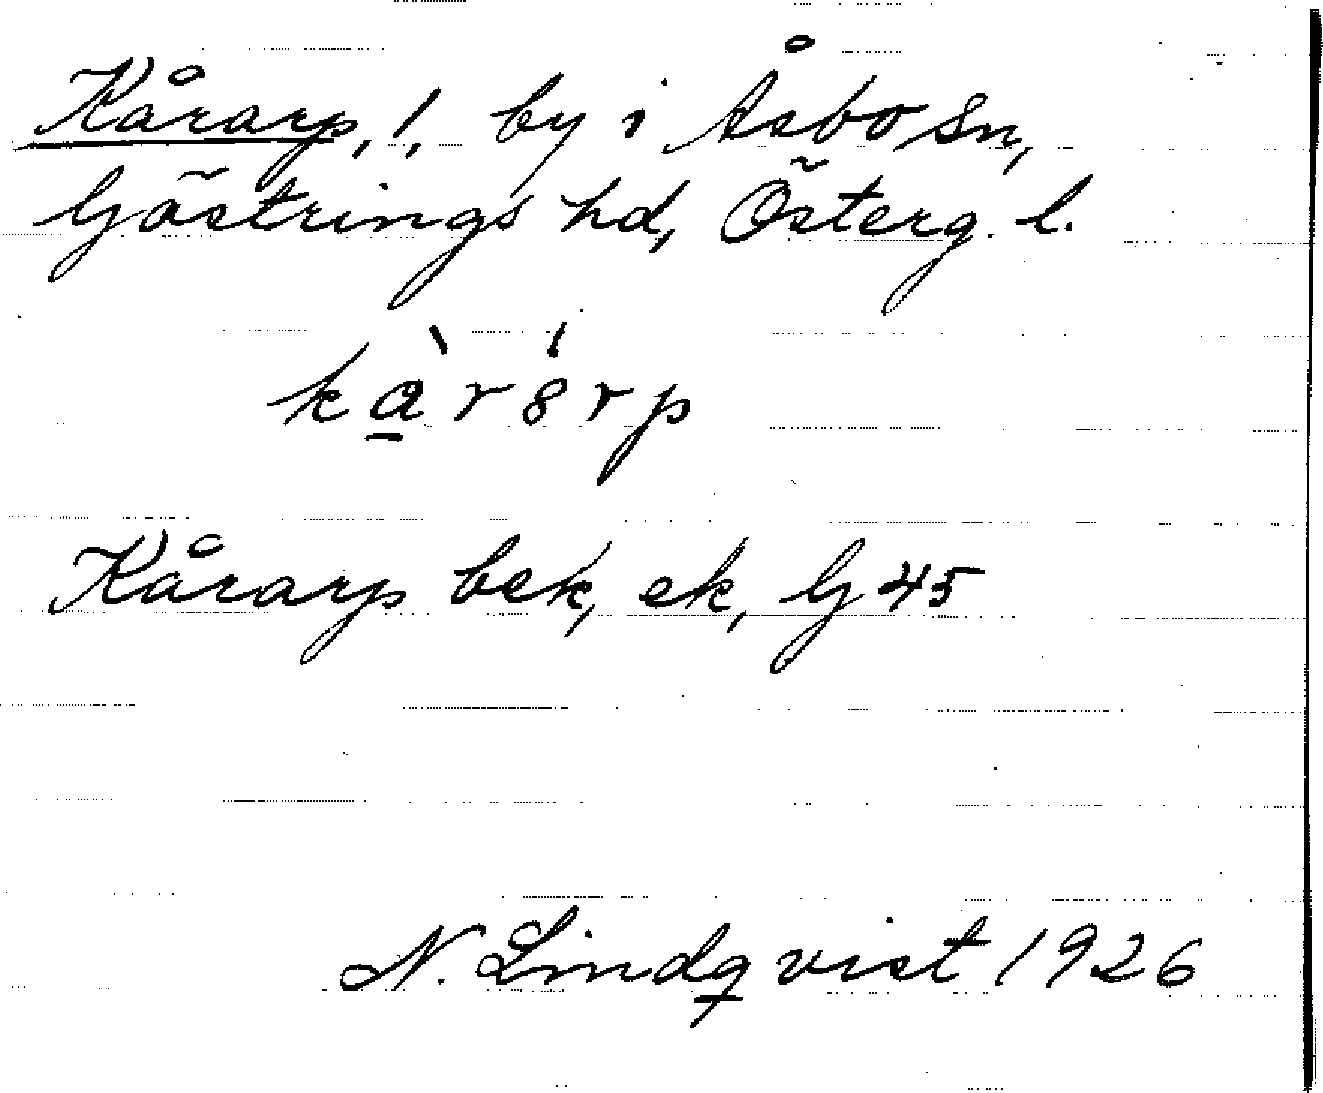 Kårarp, !, by i Åsbo sn,
Göstrings hd, Österg. l.
kà̱rȣ́rp
Kårarp bek, ek, G 45
N. Lindqvist 1926